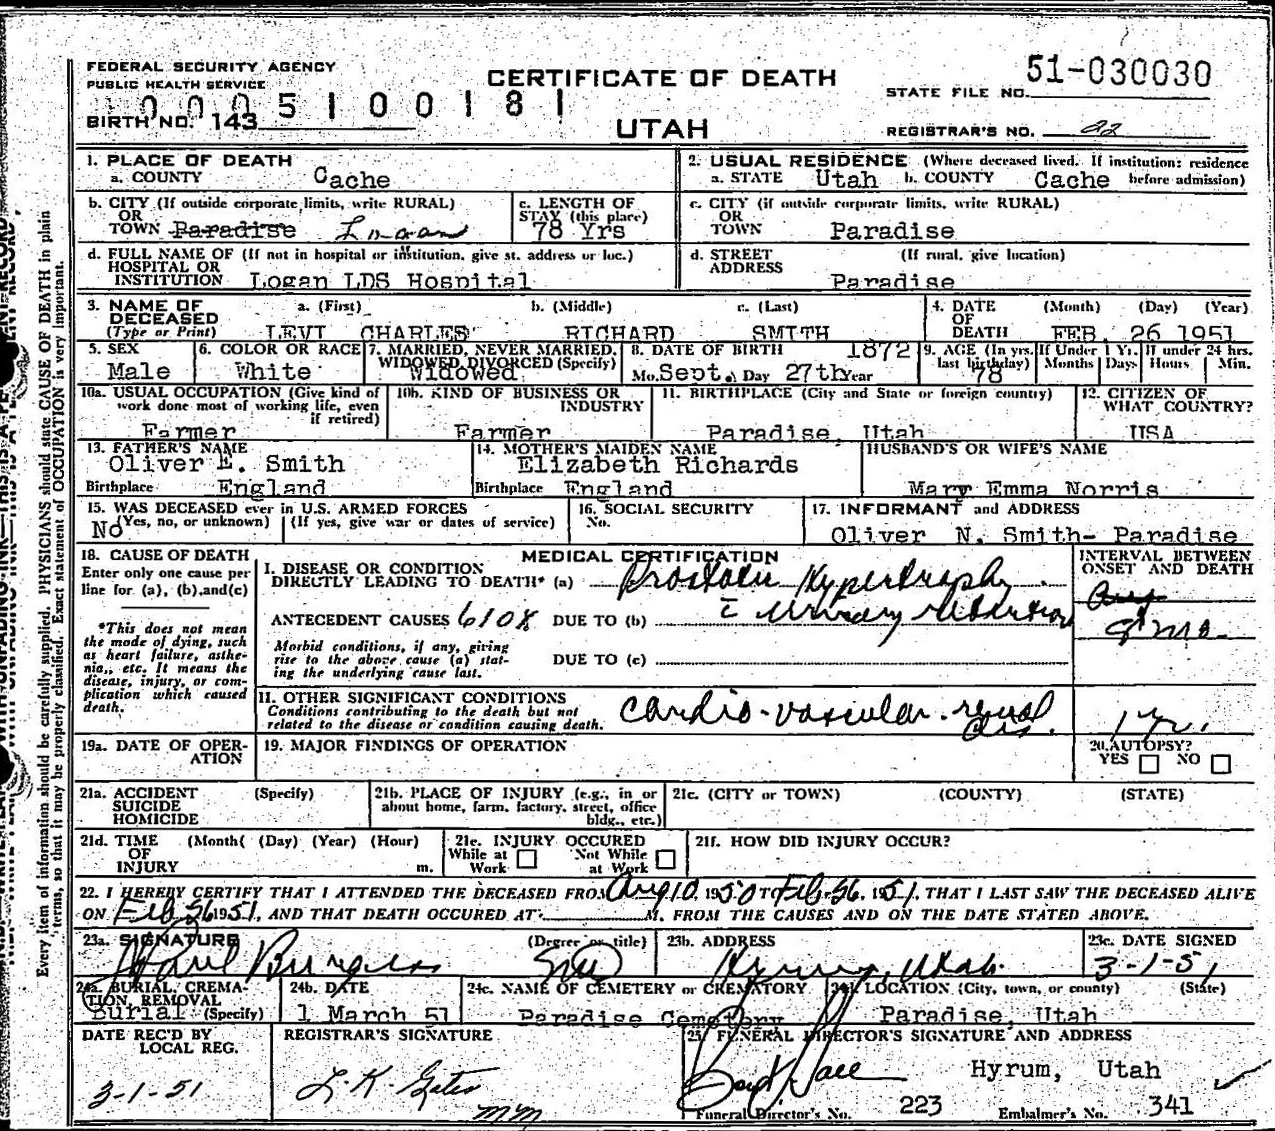 FEDERAL SECURITY AGENCY
PUBLIC HEALTH SERVICE
CERTIFICATE OF DEATH
UTAH
51-030030
STATE FILE NO.
0005100181
BIRTH NO. 143
REGISTRAR'S NO. 22
1. PLACE OF DEATH
a. COUNTY Cache
2. USUAL RESIDENCE (Where deceased lived. If institution: residence
a. STATE Utah b. COUNTY Cache before admission)
b. CITY (If outside corporate limits, write RURAL)
OR
TOWN Paradise Logan
c. LENGTH OF
STAY (this place)
78 Yrs
c. CITY (if outside corporate limits, write RURAL)
OR
TOWN Paradise
d. FULL NAME OF (If not in hospital or institution, give st. address or loc.)
HOSPITAL OR
INSTITUTION Logan LDS Hospital
d. STREET (If rural, give location)
ADDRESS Paradise
3. NAME OF DECEASED (Type or Print)
a. (First) b. (Middle) c. (Last)
LEVI CHARLES RICHARD SMITH
4. DATE OF DEATH (Month) (Day) (Year)
FEB. 26 1951
5. SEX
Male
6. COLOR OR RACE
White
7. MARRIED, NEVER MARRIED,
WIDOWED, DIVORCED (Specify)
Widowed
8. DATE OF BIRTH 1872
Mo. Sept. Day 27th Year
9. AGE (In yrs. last birthday)
78
If Under 1 Yr.
Months Days
If under 24 hrs.
Hours Min.
10a. USUAL OCCUPATION (Give kind of
work done most of working life, even
if retired)
Farmer
10b. KIND OF BUSINESS OR
INDUSTRY
Farmer
11. BIRTHPLACE (City and State or foreign country)
Paradise, Utah
12. CITIZEN OF
WHAT COUNTRY?
USA
13. FATHER'S NAME
Oliver E. Smith
Birthplace England
14. MOTHER'S MAIDEN NAME
Elizabeth Richards
Birthplace England
HUSBAND'S OR WIFE'S NAME
Mary Emma Norris
15. WAS DECEASED ever in U.S. ARMED FORCES
(Yes, no, or unknown) (If yes, give war or dates of service)
No
16. SOCIAL SECURITY
No.
17. INFORMANT and ADDRESS
Oliver N. Smith- Paradise
18. CAUSE OF DEATH
Enter only one cause per
line for (a), (b), and (c)
*This does not mean
the mode of dying, such
as heart failure, asthe-
nia, etc. It means the
disease, injury, or com-
plication which caused
death.
MEDICAL CERTIFICATION
I. DISEASE OR CONDITION
DIRECTLY LEADING TO DEATH* (a) Prostatic Hypertrophy
ANTECEDENT CAUSES 610X DUE TO (b) c̄ Urinary retention
Morbid conditions, if any, giving
rise to the above cause (a) stat-
ing the underlying cause last.
DUE TO (c)
INTERVAL BETWEEN
ONSET AND DEATH
II. OTHER SIGNIFICANT CONDITIONS
Conditions contributing to the death but not
related to the disease or condition causing death.
cardio-vascular-renal dis.
1 yr.
19a. DATE OF OPER-
ATION
19. MAJOR FINDINGS OF OPERATION
20. AUTOPSY?
YES NO
21a. ACCIDENT (Specify)
SUICIDE
HOMICIDE
21b. PLACE OF INJURY (e.g., in or
about home, farm, factory, street, office
bldg., etc.)
21c. (CITY or TOWN) (COUNTY) (STATE)
21d. TIME (Month( (Day) (Year) (Hour)
OF
INJURY m.
21e. INJURY OCCURED
While at Work Not While at Work
21f. HOW DID INJURY OCCUR?
22. I HEREBY CERTIFY THAT I ATTENDED THE DECEASED FROM Aug 10, 1950 TO Feb. 26, 1951, THAT I LAST SAW THE DECEASED ALIVE
ON Feb 26 1951, AND THAT DEATH OCCURED AT M. FROM THE CAUSES AND ON THE DATE STATED ABOVE.
23a. SIGNATURE (Degree or title)
Paul Burgess
23b. ADDRESS
Hyrum, Utah.
23c. DATE SIGNED
3-1-51
24a. BURIAL, CREMA-
TION, REMOVAL
Burial (Specify)
24b. DATE
1 March 51
24c. NAME OF CEMETERY or CREMATORY
Paradise Cemetery
24d. LOCATION (City, town, or county) (State)
Paradise, Utah
DATE REC'D BY
LOCAL REG.
3-1-51
REGISTRAR'S SIGNATURE
L. K. Gates
mm
25. FUNERAL DIRECTOR'S SIGNATURE AND ADDRESS
Hyrum, Utah
Funeral Director's No. 223 Embalmer's No. 341
Every item of information should be carefully supplied. PHYSICIANS should state CAUSE OF DEATH in plain
terms, so that it may be properly classified. Exact statement of OCCUPATION is very important.